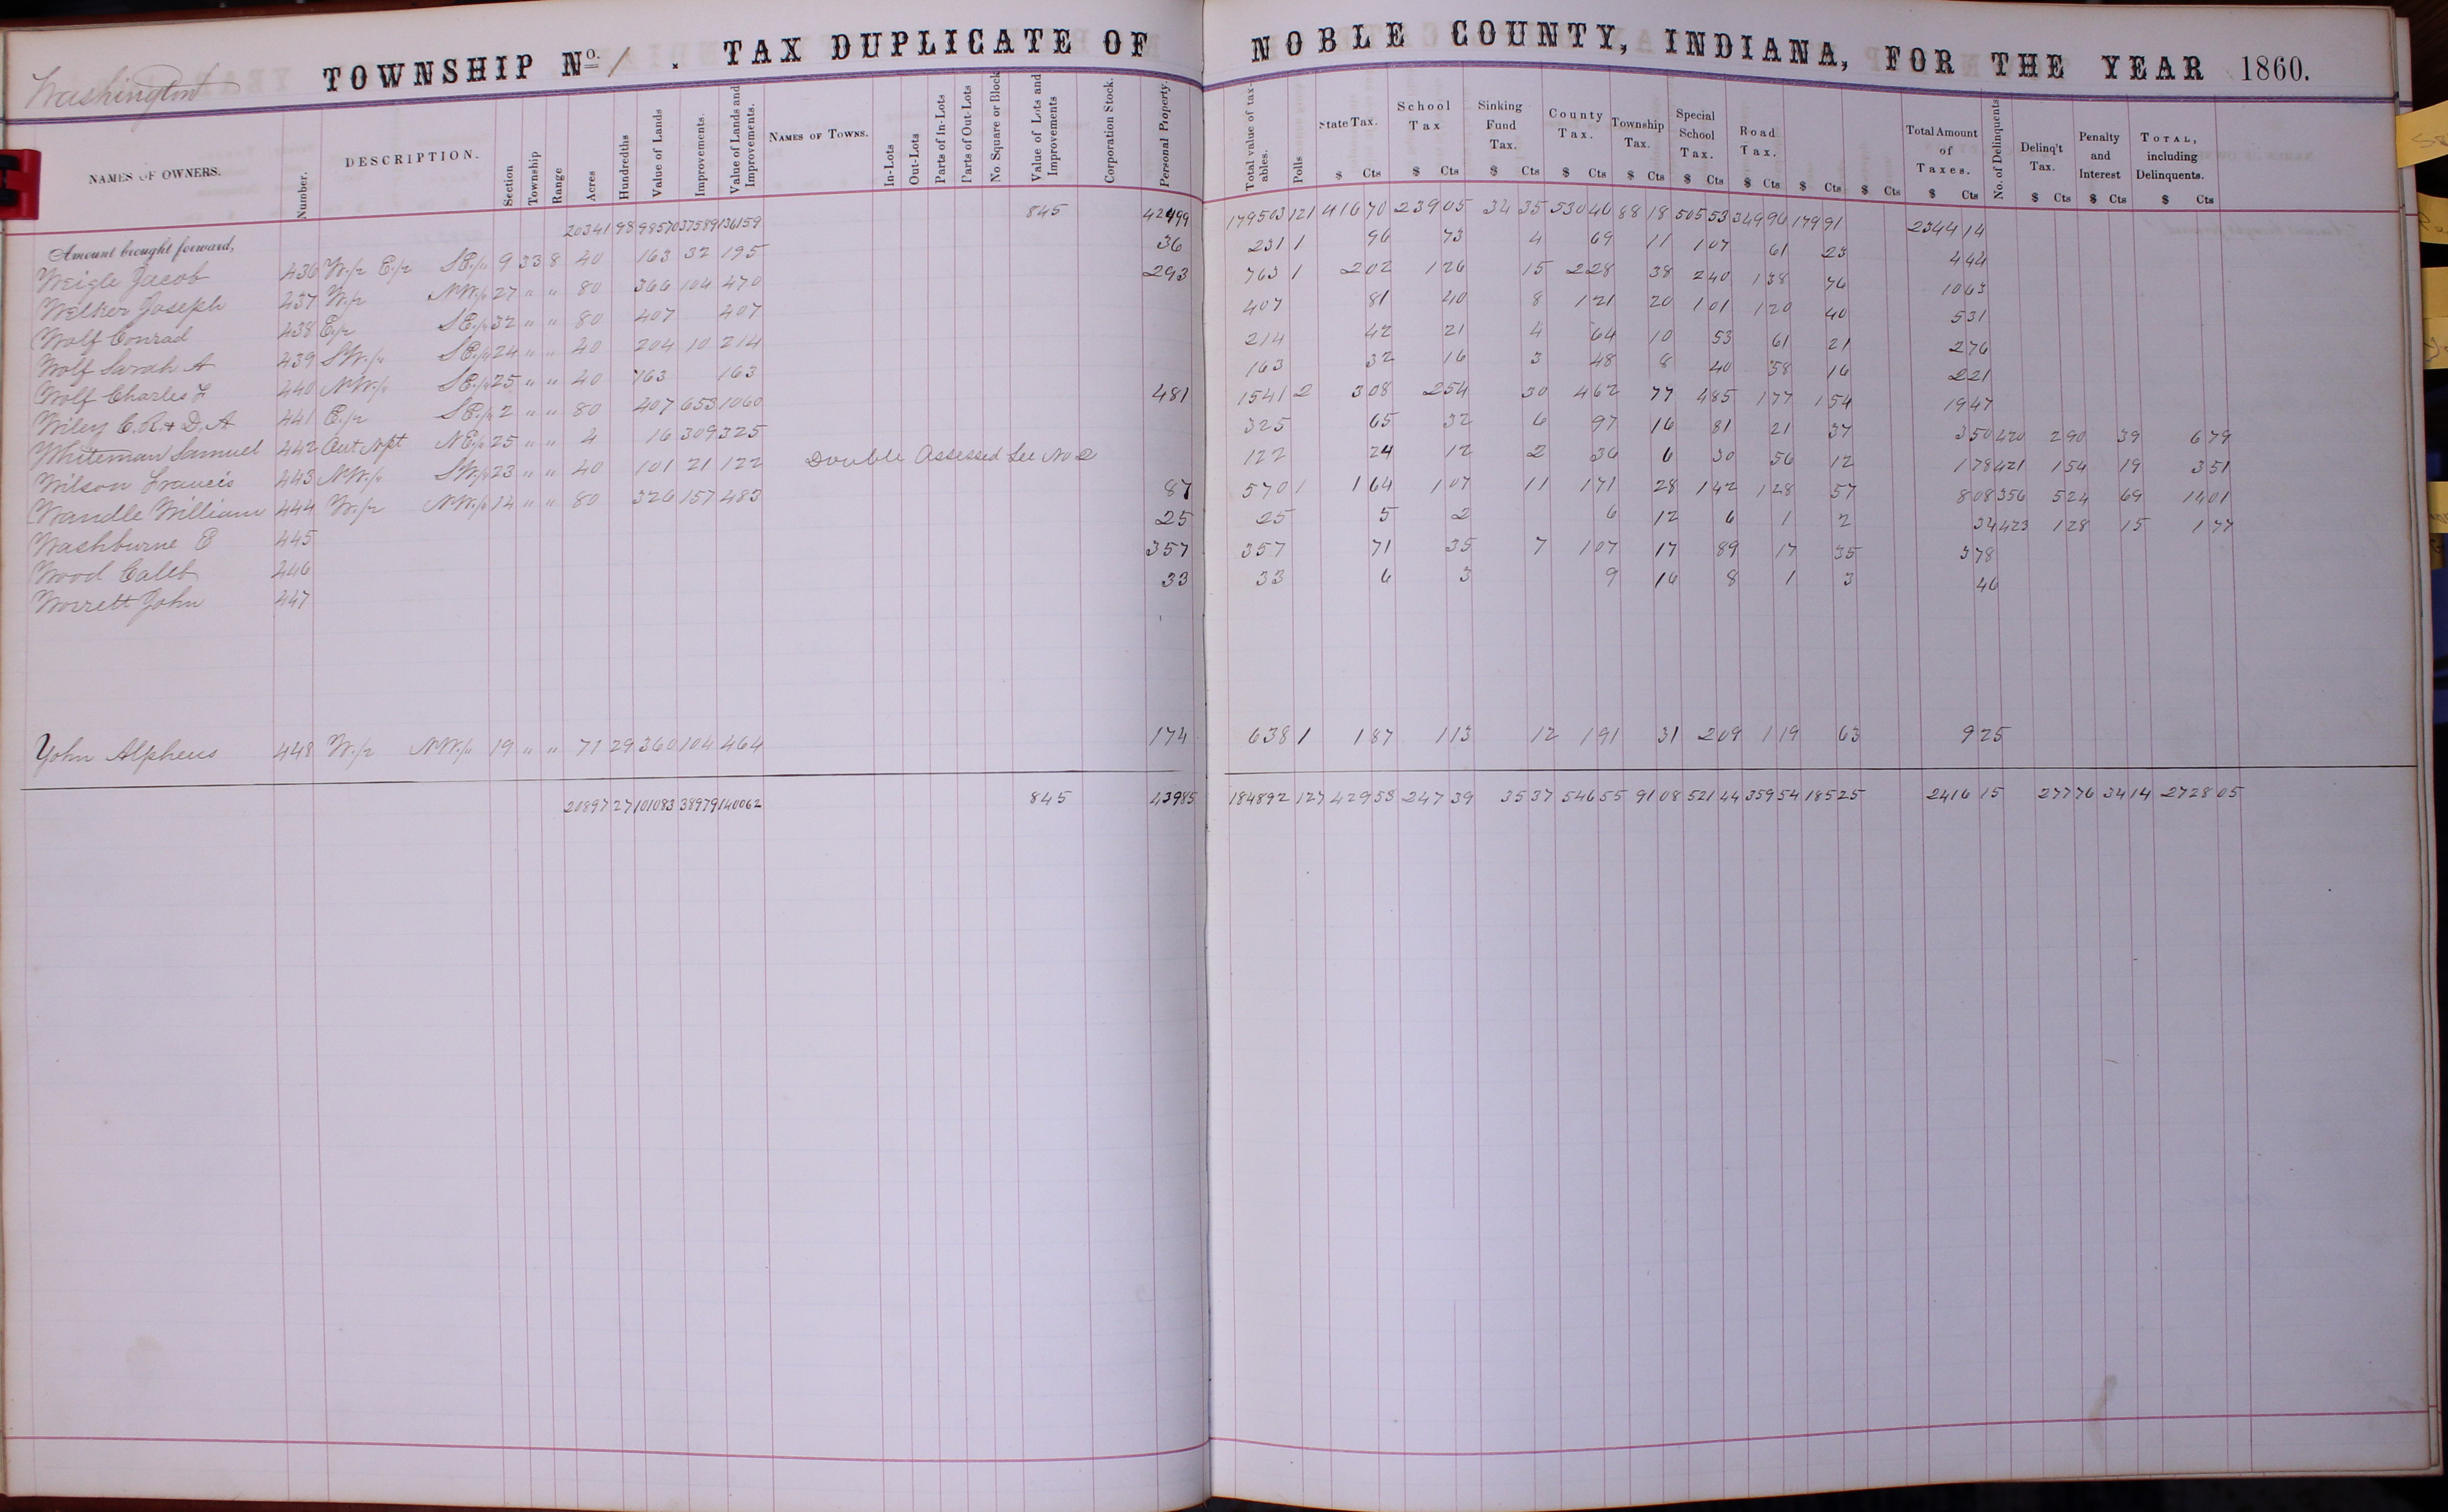 Washington
TOWNSHIP No. 1 . TAX DUPLICATE OF NOBLE COUNTY, INDIANA, FOR THE YEAR 1860.
NAMES OF OWNERS. Number. DESCRIPTION. Section Township Range Acres Hundredths Value of Lands Improvements. Value of Lands and Improvements. NAMES OF TOWNS. In-Lots Out-Lots Parts of In-Lots Parts of Out-Lots No Square or Block Value of Lots and Improvements Corporation Stock. Personal Property. Total value of taxables. Polls State Tax. School Tax Sinking Fund Tax. County Tax. Township Tax. Special School Tax. Road Tax. Total Amount of Taxes. No. of Delinquents Delinq't Tax. Penalty and Interest TOTAL, including Delinquents.
$ Cts $ Cts $ Cts $ Cts $ Cts $ Cts $ Cts $ Cts $ Cts $ Cts $ Cts $ Cts $ Cts
Amount brought forward, 20341 98 98570 37589 136159 845 42499 179503 121 416 70 239 05 34 35 530 46 88 18 505 53 349 96 179 91 2344 14
Weigle Jacob 436 W./2 E./2 SE./4 9 33 8 40 163 32 195 36 231 1 96 73 4 69 11 1 07 61 23 4 44
Welker Joseph 437 W./2 NW./4 27 " " 80 366 104 470 293 763 1 2 02 1 26 15 2 28 38 2 40 1 38 76 10 63
Wolf Conrad 438 E./2 SE./4 32 " " 80 407 407 407 81 40 8 1 21 20 1 01 1 20 40 5 31
Wolf Sarah A 439 SW./4 SE./4 24 " " 40 204 10 214 214 42 21 4 64 10 53 61 21 2 76
Wolf Charles F 440 NW./4 SE./4 25 " " 40 163 163 163 32 16 3 48 8 40 58 16 2 21
Wiley C. R. & D. A 441 E./2 SE./4 2 " " 80 407 653 1060 481 1541 2 3 08 2 54 30 4 62 77 4 85 1 77 1 54 19 47
Whiteman Samuel 442 Out Npt NE./4 25 " " 4 16 309 325 325 65 32 6 97 16 81 21 37 3 50 420 2 90 39 6 79
Wilson Francis 443 NW./4 SW./4 23 " " 40 101 21 122 Double Assessed See No 2 122 24 12 2 36 6 30 56 12 1 78 421 1 54 19 3 51
Wandle William 444 W./2 NW./4 14 " " 80 326 157 483 87 570 1 1 64 1 07 11 1 71 28 1 42 1 28 57 8 08 356 5 24 69 14 01
Washburne E 445 25 25 5 2 6 12 6 1 2 34 423 1 28 15 1 77
Wood Caleb 446 357 357 71 35 7 1 07 17 89 17 35 3 78
Worrett John 447 33 33 6 3 9 16 8 1 3 46
Yohn Alpheus 448 W./2 NW./4 19 " " 71 29 360 104 464 174 638 1 1 87 1 13 12 1 91 31 2 09 1 19 63 9 25
20897 27 101083 38979 140062 845 43985 184892 127 429 53 247 39 35 37 546 55 91 08 521 44 359 54 185 25 2416 15 277 76 34 14 2728 05